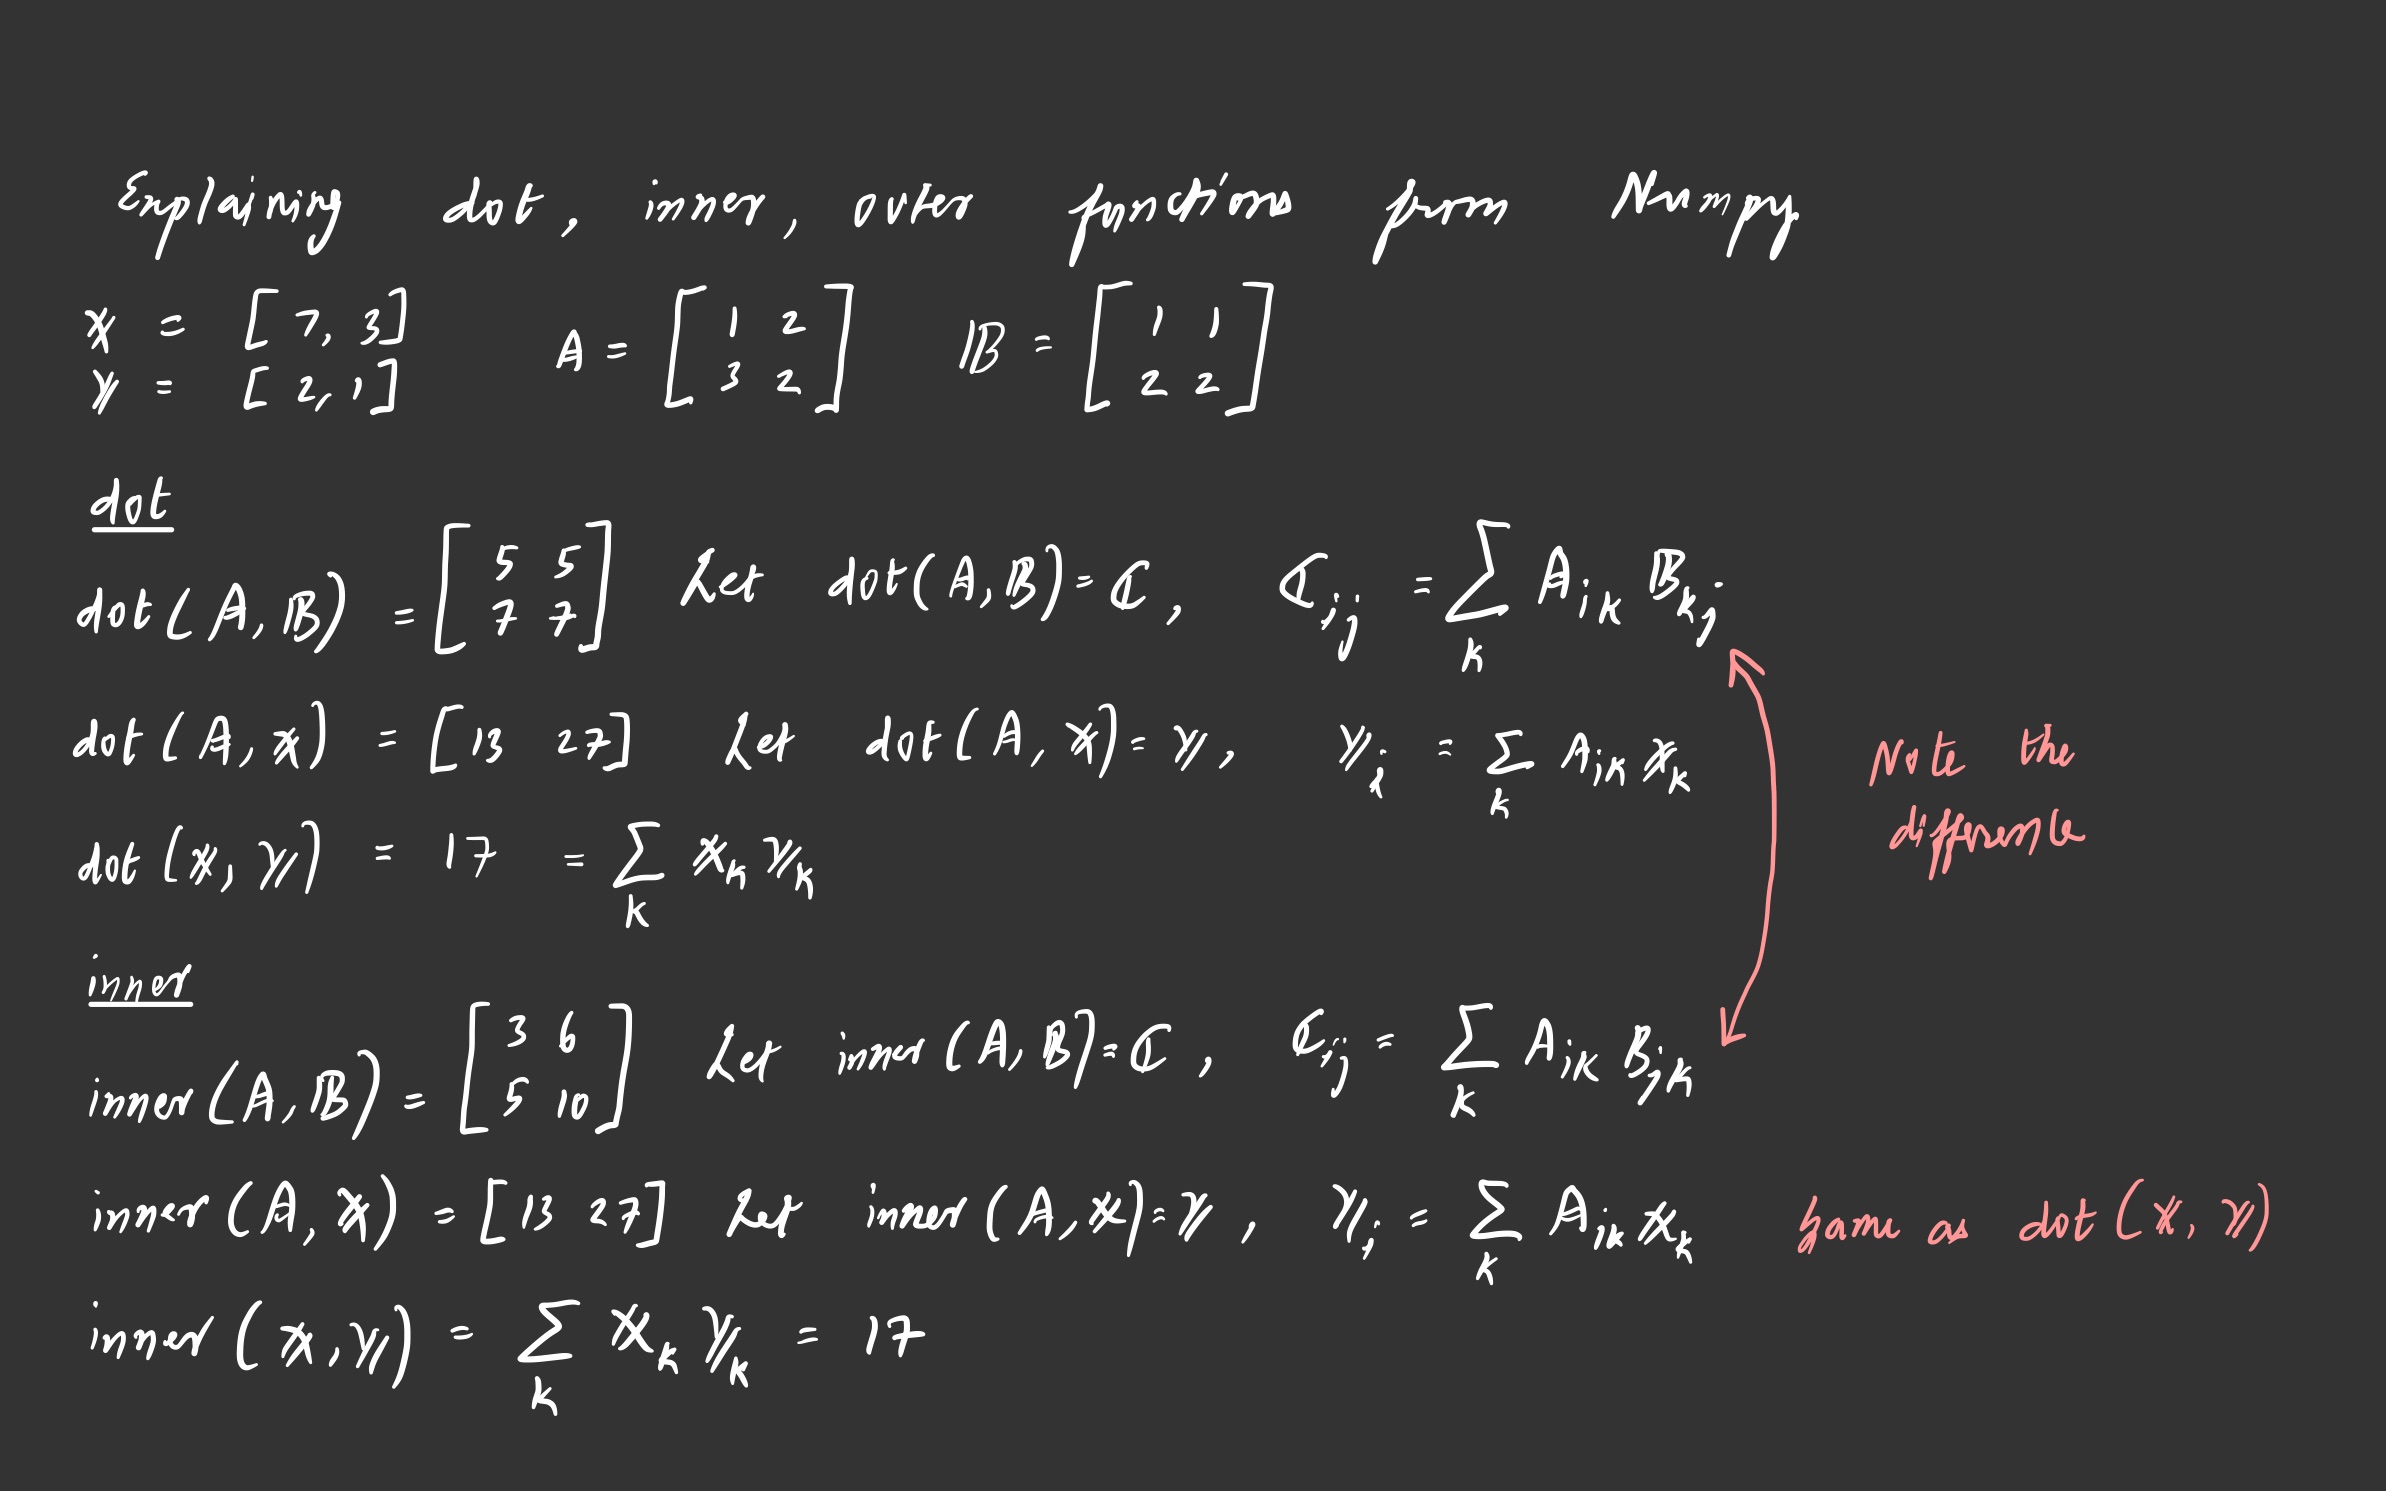 Explaining dot, inner, outer functions from Numpy
𝕏 = [7, 3]
𝕐 = [2, 1]
𝔸 = [1 2
3 2]
𝔹 = [1 1
2 2]
dot
dot(𝔸, 𝔹) = [5 5
7 7] Let dot(𝔸, 𝔹) = ℂ, ℂij = ∑k 𝔸ik 𝔹kj
dot(𝔸, 𝕏) = [13 27] Let dot(𝔸, 𝕏) = 𝕐, 𝕐i = ∑k 𝔸ik 𝕏k
Note the
difference
dot(𝕏, 𝕐) = 17 = ∑k 𝕏k 𝕐k
inner
inner(𝔸, 𝔹) = [3 6
5 10] Let inner(𝔸, 𝔹) = ℂ, ℂij = ∑k 𝔸ik 𝔹jk
inner(𝔸, 𝕏) = [13 27] Let inner(𝔸, 𝕏) = 𝕐, 𝕐i = ∑k 𝔸ik 𝕏k same as dot(𝕏, 𝕐)
inner(𝕏, 𝕐) = ∑k 𝕏k 𝕐k = 17